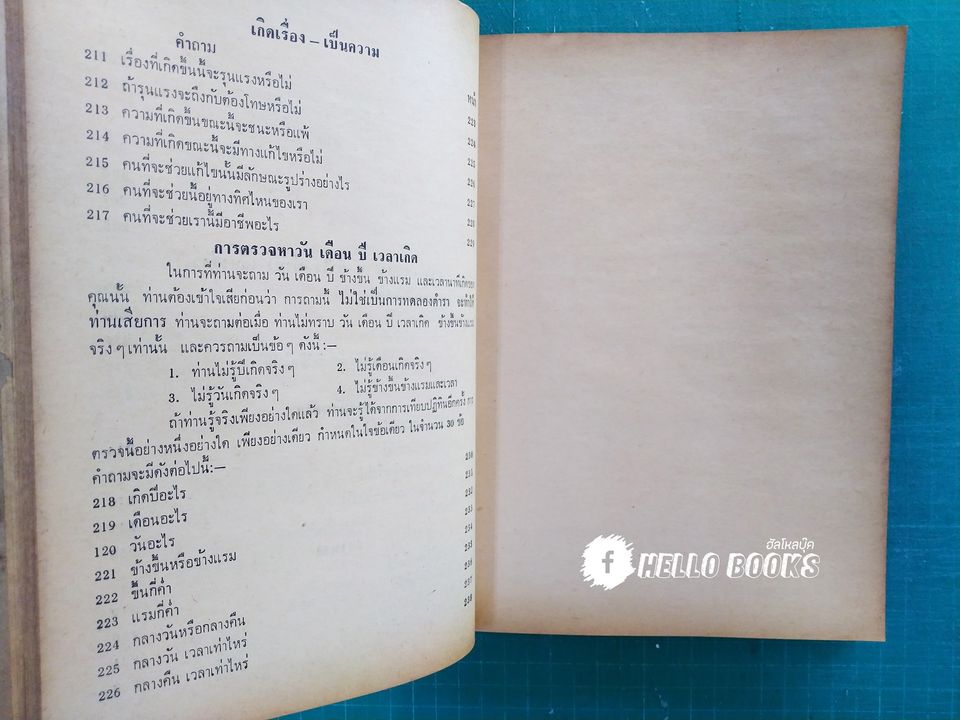 เกิดเรื่อง – เป็นความ
คำถาม
หน้า
211 เรื่องที่เกิดขึ้นนี้จะรุนแรงหรือไม่ 223
212 ถ้ารุนแรงจะถึงกับต้องโทษหรือไม่ 224
213 ความที่เกิดขึ้นขณะนี้จะชนะหรือแพ้ 225
214 ความที่เกิดขณะนี้จะมีทางแก้ไขหรือไม่ 226
215 คนที่จะช่วยแก้ไขนั้นมีลักษณะรูปร่างอย่างไร 227
216 คนที่จะช่วยนี้อยู่ทางทิศไหนของเรา 228
217 คนที่จะช่วยเรานี้มีอาชีพอะไร 229
การตรวจหาวัน เดือน ปี เวลาเกิด
ในการที่ท่านจะถาม วัน เดือน ปี ข้างขึ้น ข้างแรม และเวลานาทีเกิดของ
คุณนั้น ท่านต้องเข้าใจเสียก่อนว่า การถามนี้ ไม่ใช่เป็นการทดลองตำรา จะทำให้
ท่านเสียการ ท่านจะถามต่อเมื่อ ท่านไม่ทราบ วัน เดือน ปี เวลาเกิด ข้างขึ้นข้างแรม
จริง ๆ เท่านั้น และควรถามเป็นข้อ ๆ ดังนี้ :–
1. ท่านไม่รู้ปีเกิดจริง ๆ 2. ไม่รู้เดือนเกิดจริง ๆ
3. ไม่รู้วันเกิดจริง ๆ 4. ไม่รู้ข้างขึ้นข้างแรมและเวลา
ถ้าท่านรู้จริงเพียงอย่างใดแล้ว ท่านจะรู้ได้จากการเทียบปฏิทินอีกครั้ง การ
ตรวจนี้อย่างหนึ่งอย่างใด เพียงอย่างเดียว กำหนดในใจข้อเดียว ในจำนวน 30 ข้อ
คำถามจะมีดังต่อไปนี้:–
218 เกิดปีอะไร 230
219 เดือนอะไร 231
120 วันอะไร 232
221 ข้างขึ้นหรือข้างแรม 233
222 ขึ้นกี่ค่ำ 234
223 แรมกี่ค่ำ 235
224 กลางวันหรือกลางคืน 236
225 กลางวัน เวลาเท่าไหร่ 237
226 กลางคืน เวลาเท่าไหร่ 238
ฮัลโหลบุ๊ค
HELLO BOOKS